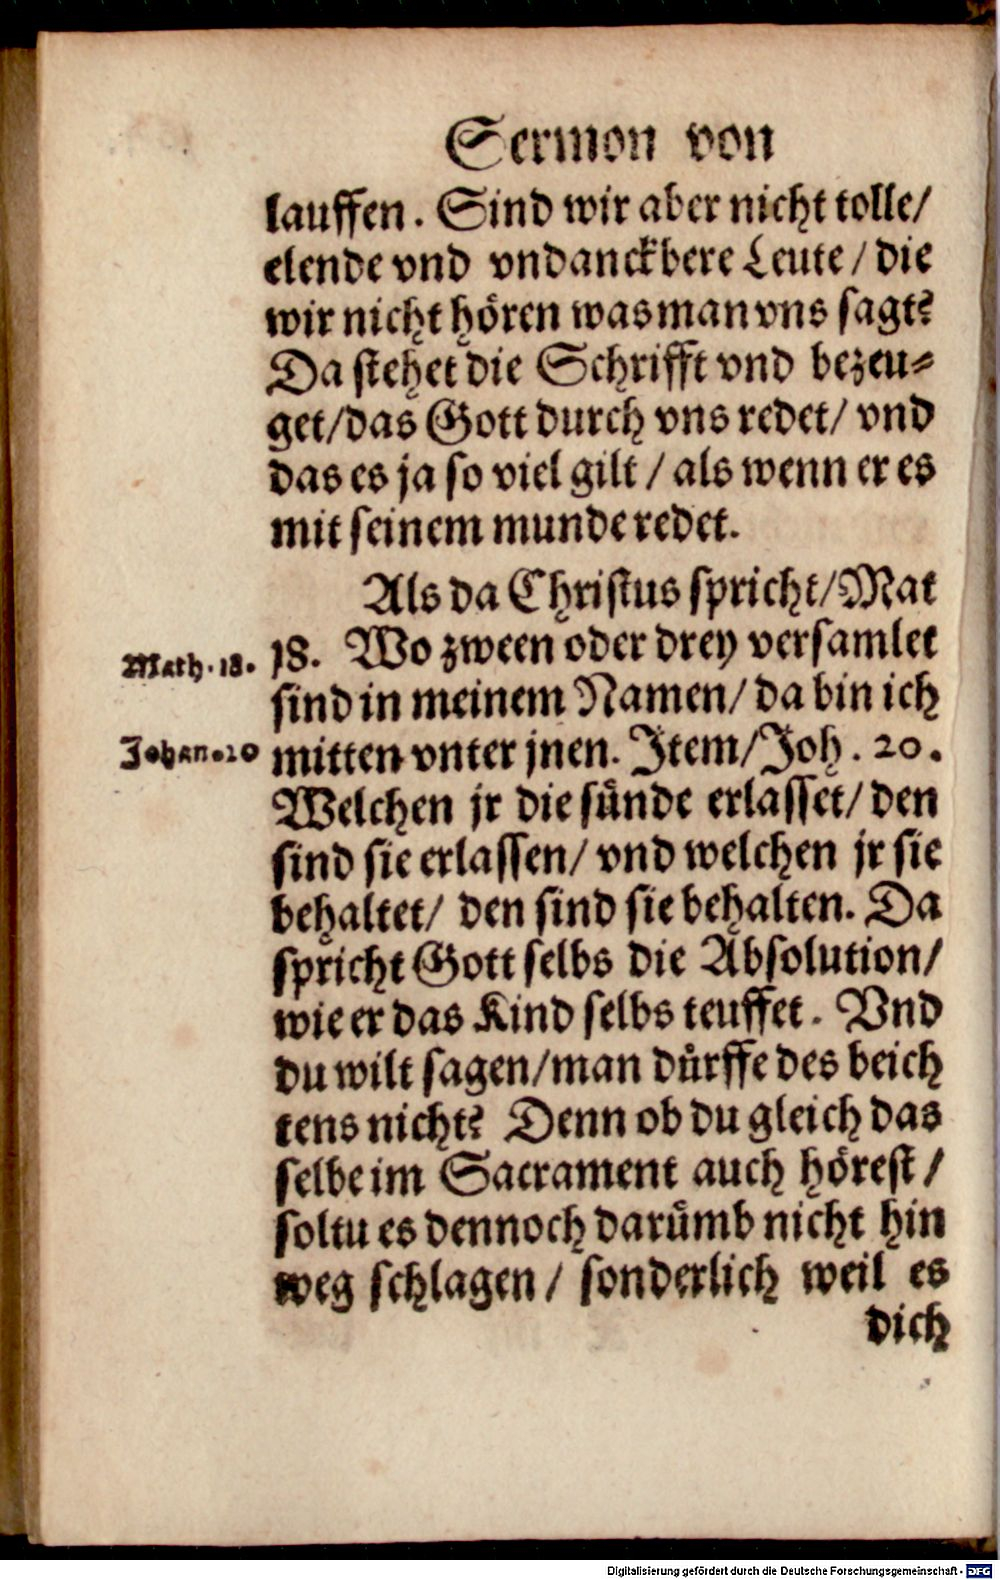 Sermon von
lauffen. Sind wir aber nicht tolle/
elende vnd vndanckbere Leute / die
wir nicht hören was man vns sagt?
Da stehet die Schrifft vnd bezeu⸗
get/das Gott durch vns redet/ vnd
das es ja so viel gilt / als wenn er es
mit seinem munde redet.
Als da Christus spricht/Mat
Math. 18. 18. Wo zween oder drey versamlet
sind in meinem Namen/ da bin ich
Johan. 20 mitten vnter jnen. Item/Joh. 20.
Welchen jr die sünde erlasset/ den
sind sie erlassen/ vnd welchen jr sie
behaltet/ den sind sie behalten. Da
spricht Gott selbs die Absolution/
wie er das Kind selbs teuffet. Vnd
du wilt sagen/man dürffe des beich
tens nicht? Denn ob du gleich das
selbe im Sacrament auch hörest /
soltu es dennoch darümb nicht hin
weg schlagen / sonderlich weil es
dich
Digitalisierung gefördert durch die Deutsche Forschungsgemeinschaft - DFG